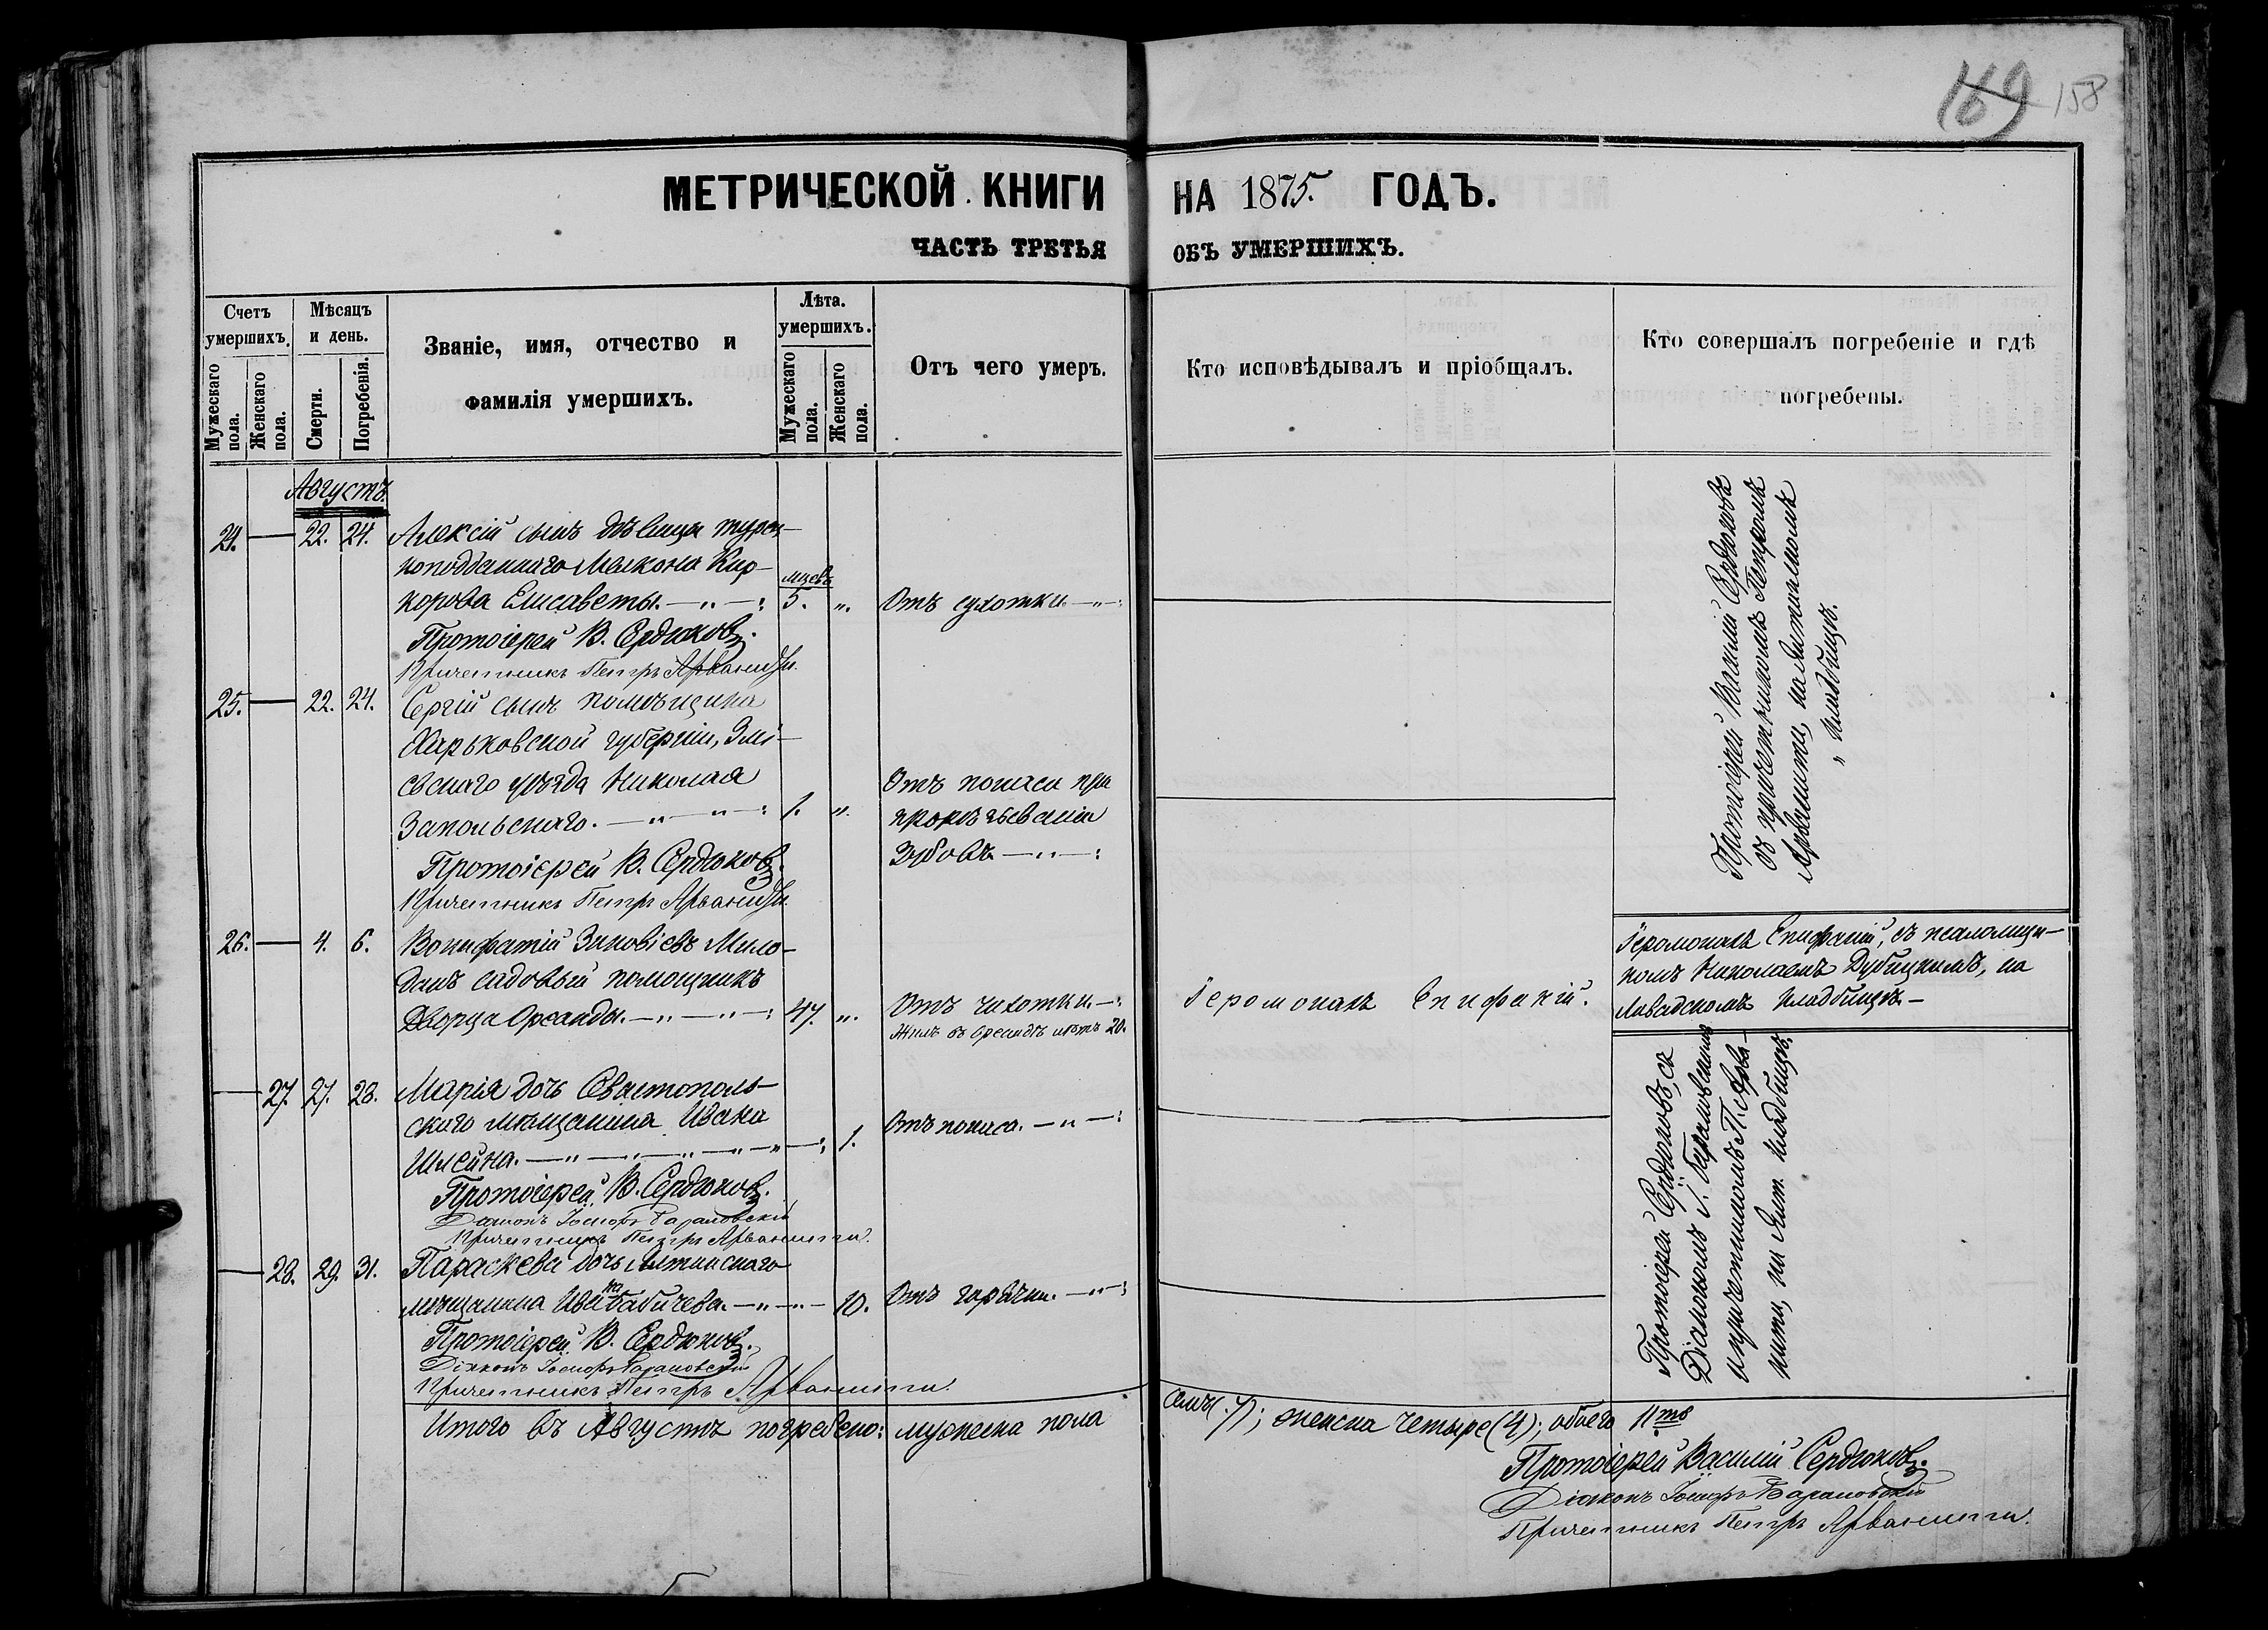 169 158
МЕТРИЧЕСКОЙ КНИГИ НА 1875. ГОДЪ.
ЧАСТЬ ТРЕТЬЯ ОБЪ УМЕРШИХЪ.
Счетъ умершихъ.
Мужескаго пола.
Женскаго пола.
Мѣсяцъ и день.
Смерти.
Погребенія.
Званіе, имя, отчество и
фамилія умершихъ.
Лѣта. умершихъ.
Мужескаго пола.
Женскаго пола.
Отъ чего умеръ.
Кто исповѣдывалъ и пріобщалъ.
Кто совершалъ погребеніе и гдѣ
погребены.
Августъ
24. — 22. 24. Алексій сынъ дѣвицы турец-
коподданнаго Малкона Кир-
мцевъ
корова Елисаветы. — „ — : 5. „. Отъ сухотки — „ — :
Протоіерей В. Сердюковъ.
Причетникъ Петръ Арваниди.
25. — 22. 24. Сергій сынъ помѣщика
Харьковской губерніи, Змі-
евскаго уѣзда Николая
Запольскаго. — „ — „ — : 1. „.
Отъ поноса при
прорѣзываніи
зубовъ — „ — :
Протоіерей В. Сердюковъ.
Причетникъ Петръ Арваниди.
Протоіерей Василій Сердюковъ
съ причетникомъ Петромъ
Арванити, на Ялтинскомъ
„ кладбищѣ.
26. — 4. 6. Вонифатій Зиновіевъ Мило-
данъ садовый помощникъ
Дворца Ореанды. — „ — „ — : 47. „. Отъ чахотки — :
Жилъ въ Ореандѣ лѣтъ 20.
Іеромонахъ Епифаній.
Іеромонахъ Епифаній, съ псаломщи-
комъ Николаемъ Дубицкимъ, на
Ливадскомъ кладбищѣ. —
— 27. 27. 28. Марія дочь Севастополь-
скаго мѣщанина Ивана
Шлейна. — „ — „ — „ — „ — : 1. Отъ поноса. — „ — :
Протоіерей В. Сердюковъ.
Діаконъ Іосифъ Барановскій
Причетникъ Петръ Арванити.
— 28. 29. 31. Параскева дочь Ялтинскаго
мѣщанина Ивана Бабичева. — „ — 10. Отъ горячки. — „ — :
Протоіерей В. Сердюковъ.
Діаконъ Іосифъ Барановскій
Причетникъ Петръ Арванити.
Протоіерей Сердюковъ, съ
Діакономъ І. Барановскимъ
и причетникомъ П. Арва-
нити, на Ялт. кладбищѣ.
Итого въ Августѣ погребено: мужеска пола семь (7); женска четыре (4); обоего 11ть
Протоіерей Василій Сердюковъ.
Діаконъ Іосифъ Барановскій
Причетникъ Петръ Арванити.